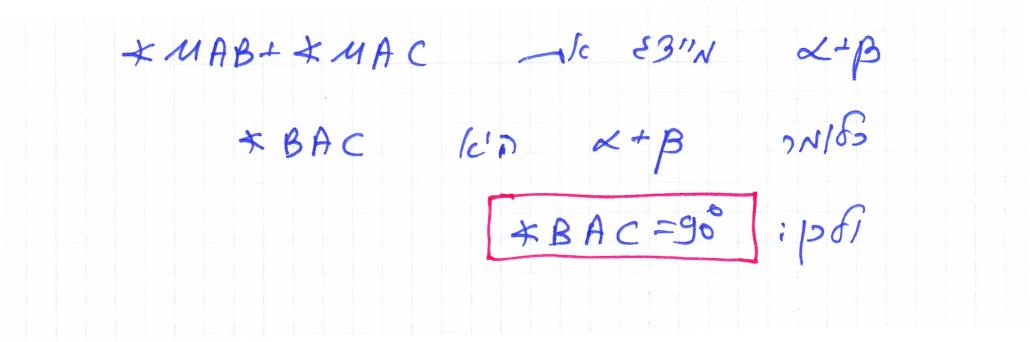 α+β מייצג את ∢MAB+∢MAC
כלומר α+β היא ∢BAC
ולכן: ∢BAC=90°